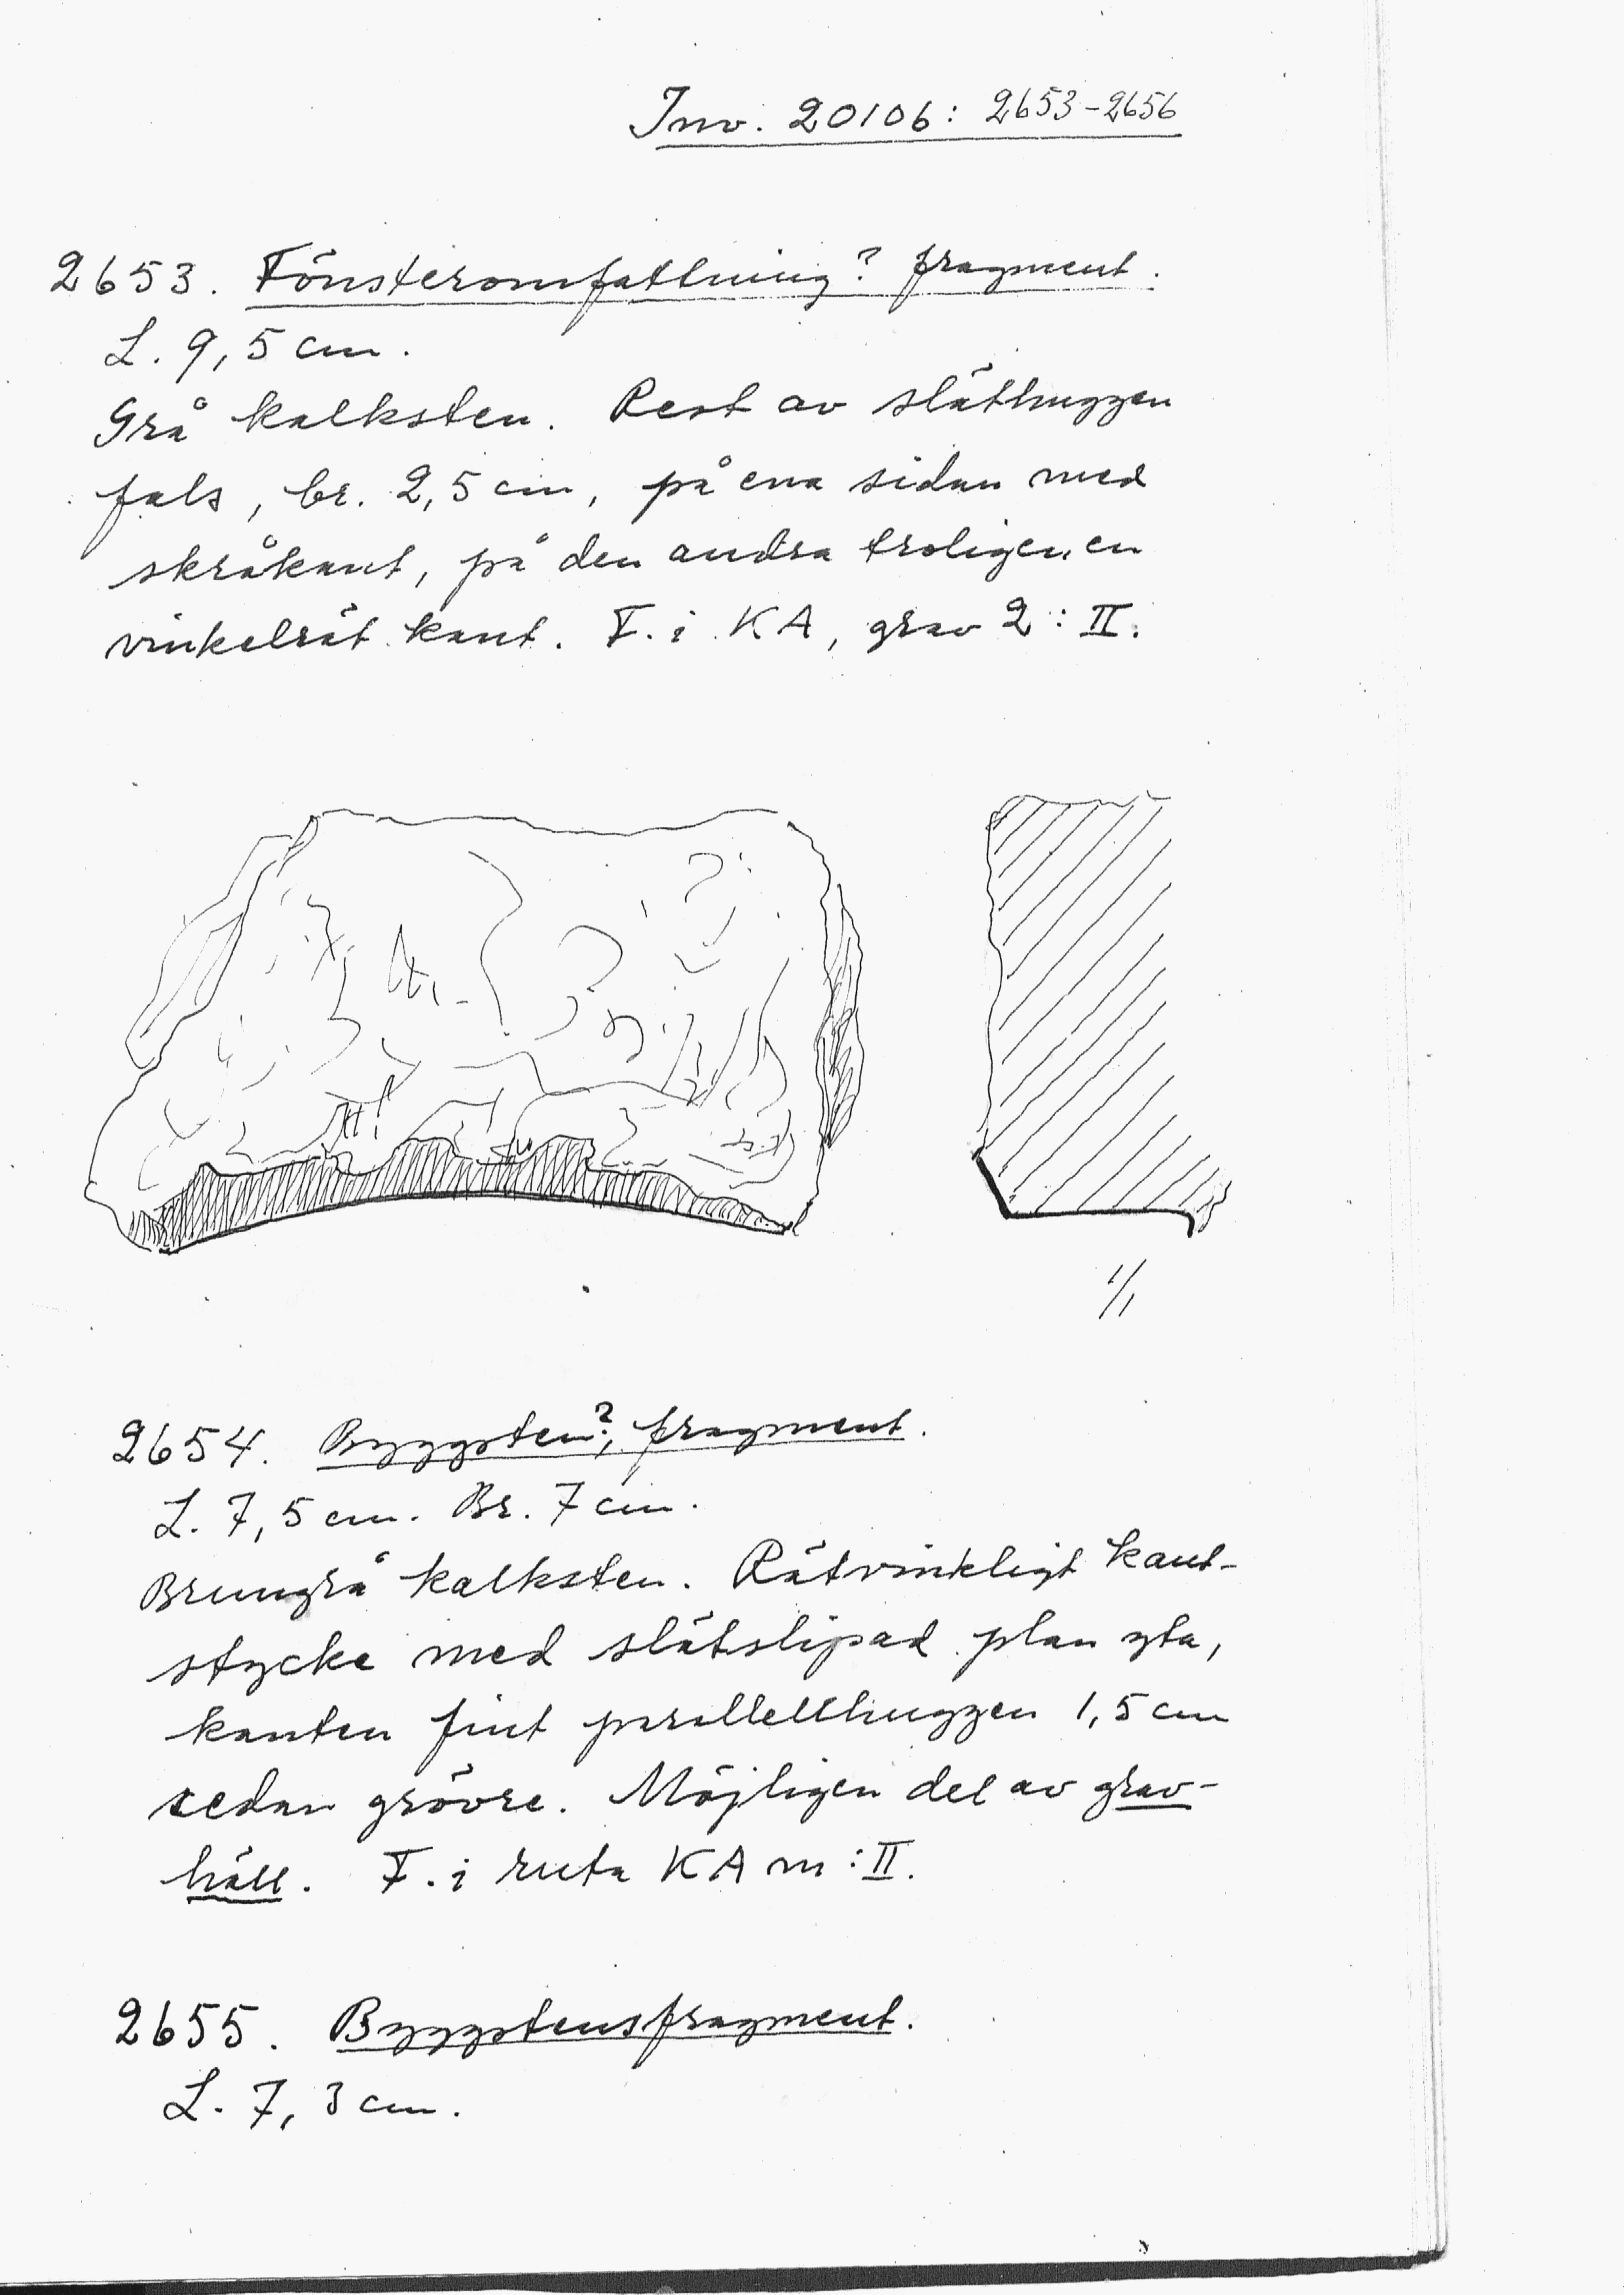 Inv. 20106: 2653-2656
2653. Fönsteromfattning? fragment.
L. 9,5 cm.
Grå kalksten. Rest av släthuggen
fals, br. 2,5 cm, på ena sidan med
skråkant, på den andra troligen en
vinkelrät kant. F. i KA, grav 2:II.
1/1
2654. Byggsten?, fragment.
L. 7,5 cm. Br. 7 cm.
Brungrå kalksten. Rätvinkligt kant-
stycke med slätslipad plan yta,
kanten fint parallellhuggen 1,5 cm
sedan grövre. Möjligen del av grav-
häll. F. i ruta KA m:II.
2655. Byggstensfragment.
L. 7,3 cm.